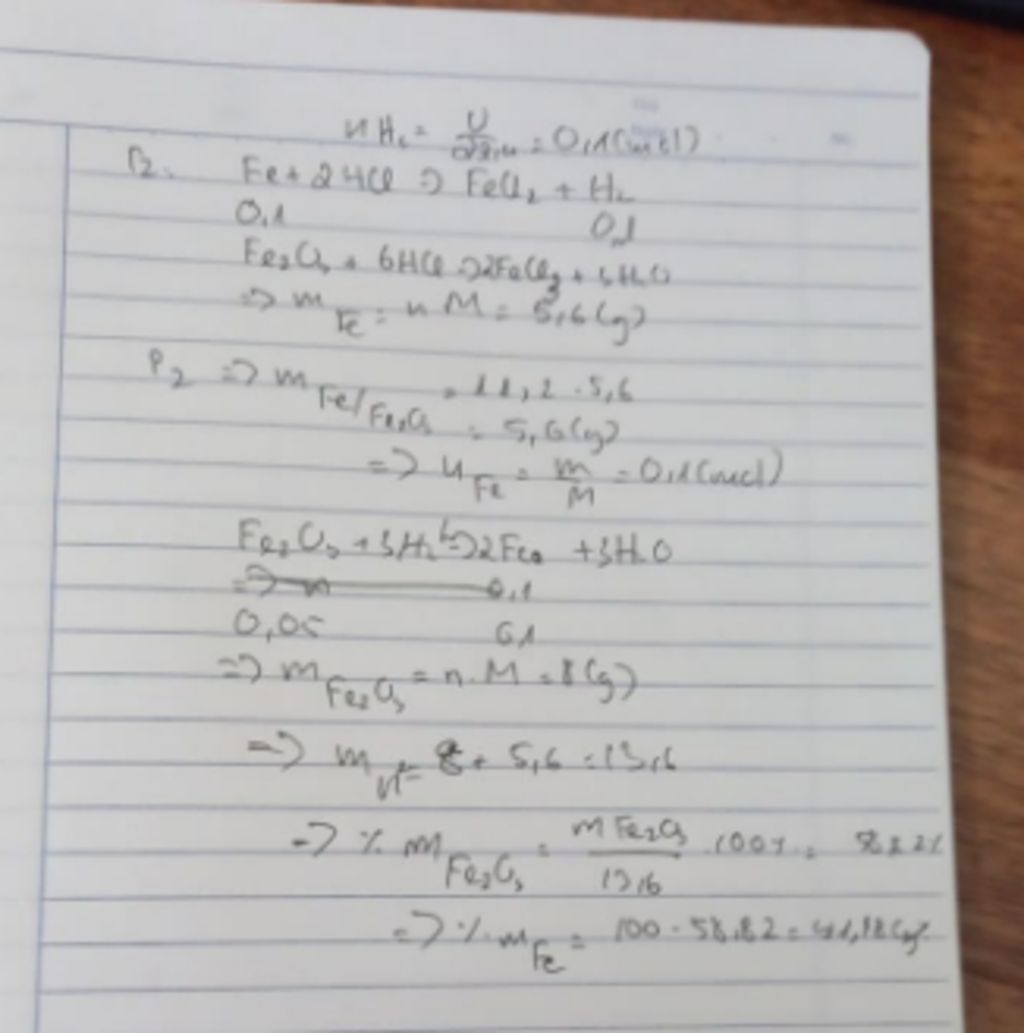 nH₂ = V/22,4 = 0,1 (mol)
P₁. Fe + 2HCl => FeCl₂ + H₂
0,1 0,1
Fe₂O₃ + 6HCl => 2FeCl₃ + 3H₂O
=> m Fe = n M = 5,6 (g)
P₂ => m Fe/Fe₂O₃ = 11,2 - 5,6
= 5,6 (g)
=> n Fe = m/M = 0,1 (mol)
Fe₂O₃ + 3H₂ => 2Fe + 3H₂O
=> n 0,1
0,05 0,1
=> m Fe₂O₃ = n.M = 8 (g)
=> m = 8 + 5,6 = 13,6
=> % m Fe₂O₃ = mFe₂O₃/13,6 .100% = 58,82%
=> % m Fe = 100 - 58,82 = 41,18